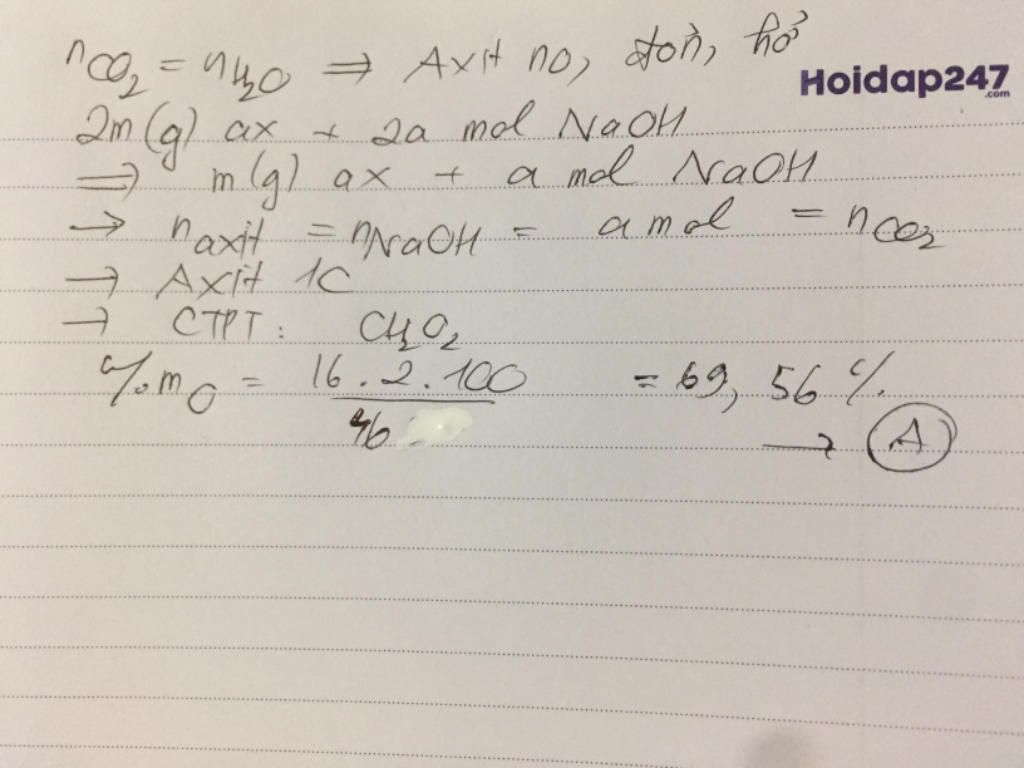 nCO₂ = nH₂O ⇒ Axit no, đơn, hở
Hoidap247
.com
2m (g) ax + 2a mol NaOH
⇒ m (g) ax + a mol NaOH
→ n axit = nNaOH = a mol = nCO₂
→ Axit 1C
→ CTPT: CH₂O₂
%mO = 16.2.100 / 46 = 69,56 %.
→ A